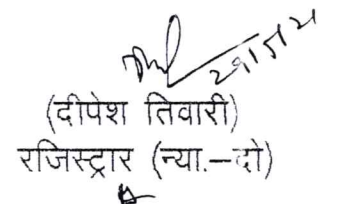 (दीपेश तिवारी)
रजिस्ट्रार (न्या.–दो)